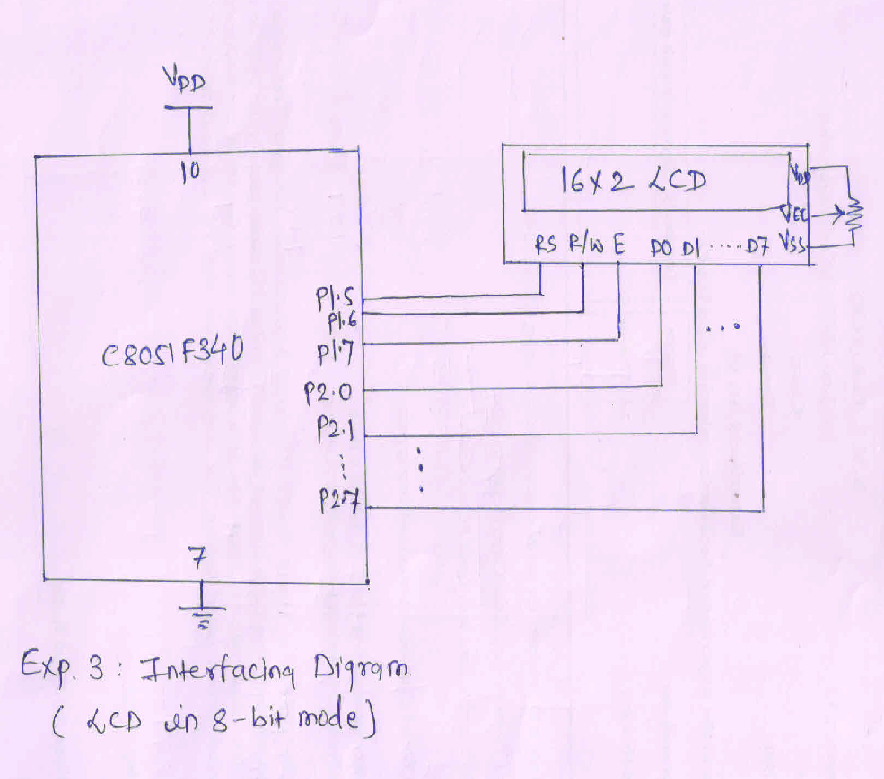 VDD
10
C8051F340
P1.5
P1.6
P1.7
P2.0
P2.1
P2.7
7
16X2 LCD
VDD
VEE
VSS
RS R/W E D0 D1 ..... D7
Exp. 3 : Interfacing Digram
( LCD in 8-bit mode)